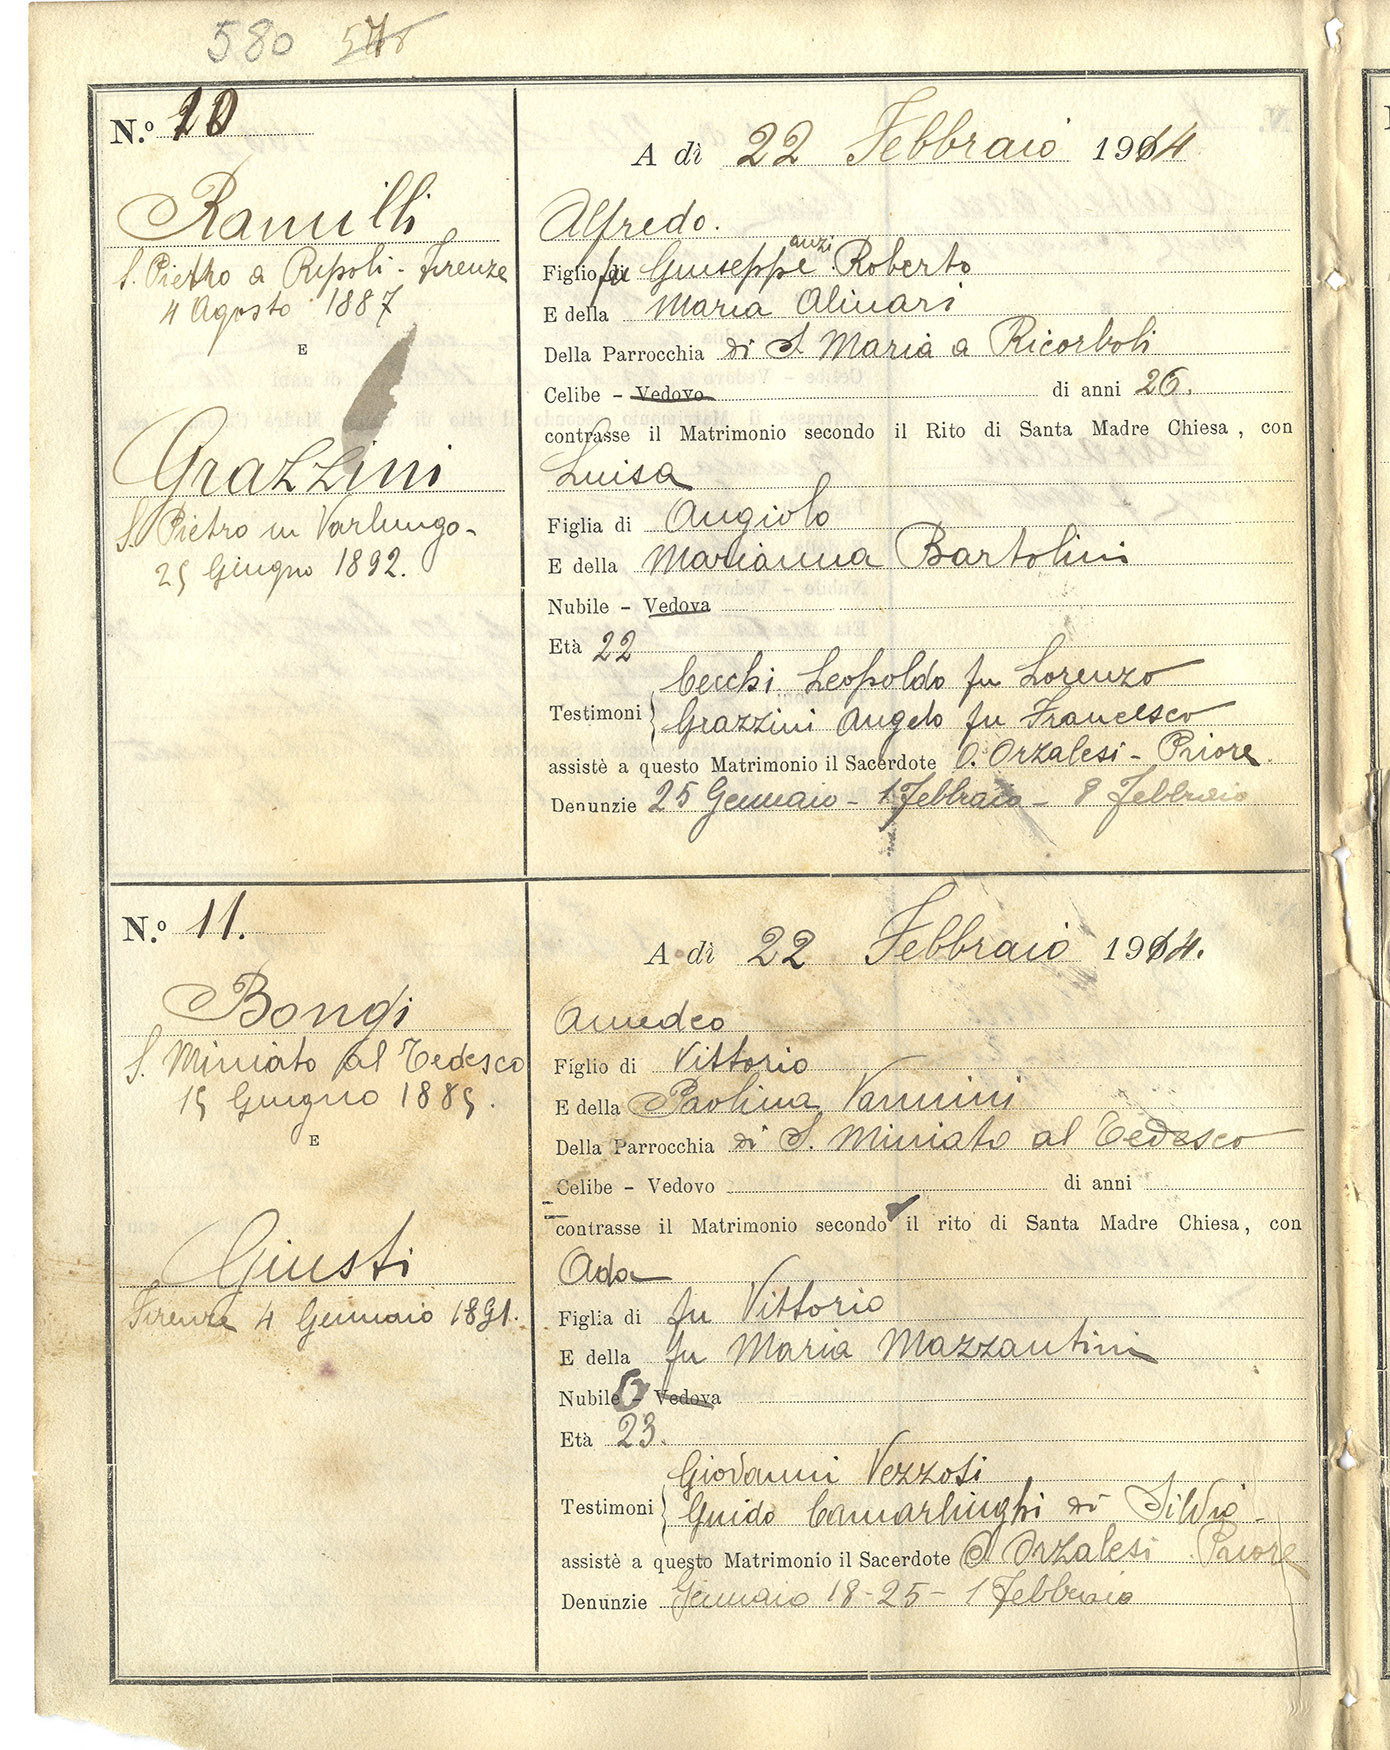 580 578
N.º 10
Ramilli
S. Pietro a Ripoli - Firenze
4 Agosto 1887
E
Grazzini
S. Pietro in Varlungo -
25 Giugno 1892.
A dì 22 Febbraio 1914
Alfredo.
Figlio fu Giuseppe anzi Roberto
E della Maria Alinari
Della Parrocchia di S. Maria a Ricorboli
Celibe - Vedovo di anni 26.
contrasse il Matrimonio secondo il Rito di Santa Madre Chiesa, con
Luisa
Figlia di Angiolo
E della Marianna Bartolini
Nubile - Vedova
Età 22
Cecchi Leopoldo fu Lorenzo
Testimoni Grazzini Angelo fu Francesco
assistè a questo Matrimonio il Sacerdote O. Orzalesi - Priore.
Denunzie 25 Gennaio - 1 Febbraio - 8 Febbraio
N.º 11.
Bongi
S. Miniato al Tedesco
15 Giugno 1885.
E
Giusti
Firenze 4 Gennaio 1891.
A dì 22 Febbraio 1914.
Amedeo
Figlio di Vittorio
E della Paolina Vannini
Della Parrocchia di S. Miniato al Tedesco
Celibe - Vedovo di anni
contrasse il Matrimonio secondo il rito di Santa Madre Chiesa, con
Ada
Figlia di fu Vittorio
E della fu Maria Mazzantini
Nubile - Vedova
Età 23.
Giovanni Vezzosi
Testimoni Guido Camarlinghi di Silvio -
assistè a questo Matrimonio il Sacerdote O. Orzalesi Priore
Denunzie Gennaio 18 - 25 - 1 Febbraio